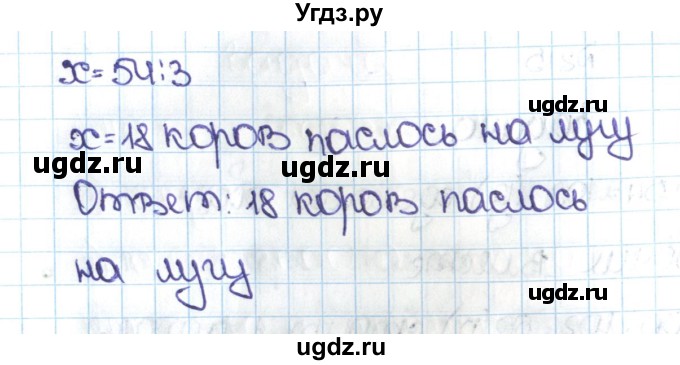 Угдз.ру
x=54:3
ugdz.ru
x=18 коров паслось на лугу
ugdz.ru
ugdz.ru
Ответ: 18 коров паслось
на лугу
ugdz.ru
ugdz.ru